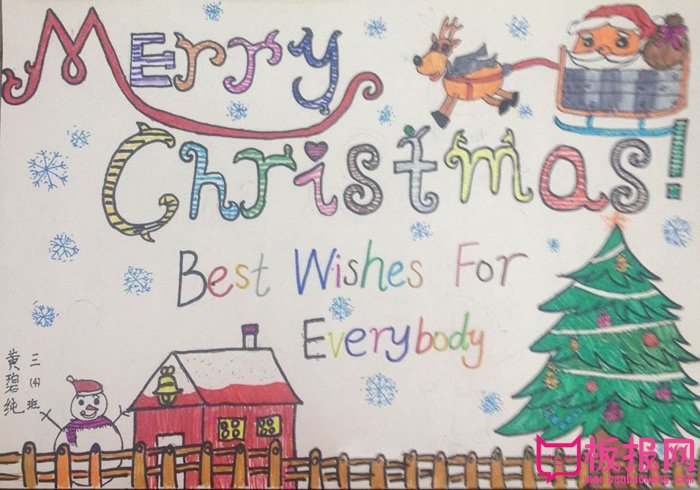 Merry
Christmas!
Best Wishes For
Everybody
三(4)班
黄碧纯
板报网